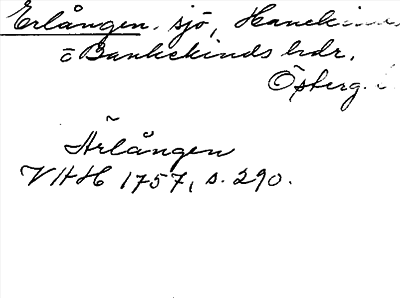 Erlången. sjö, Hanekinds
o Bankekinds hdr.
Österg.
Ärlången
VHH 1757, s. 290.